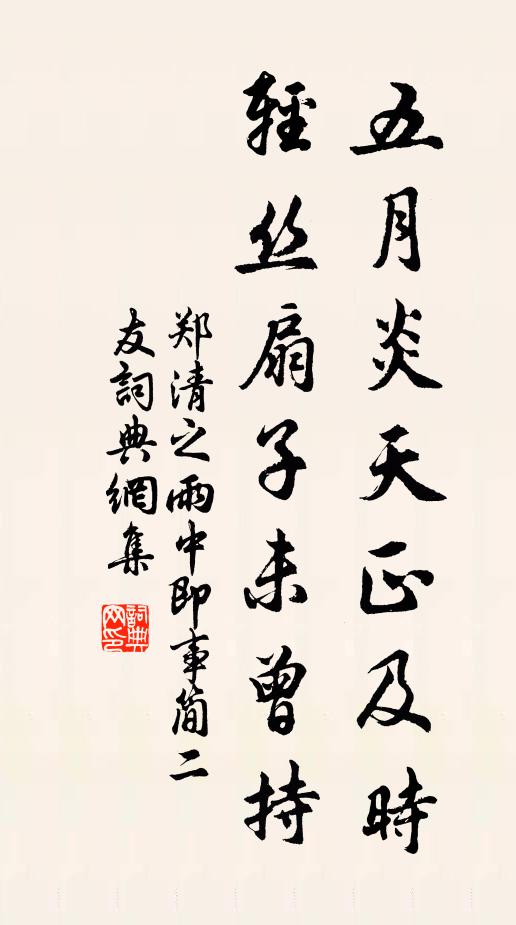 五月炎天正及時
輕丝扇子未曾持
郑清之雨中即事简二
友詞典網集
詞典
网印